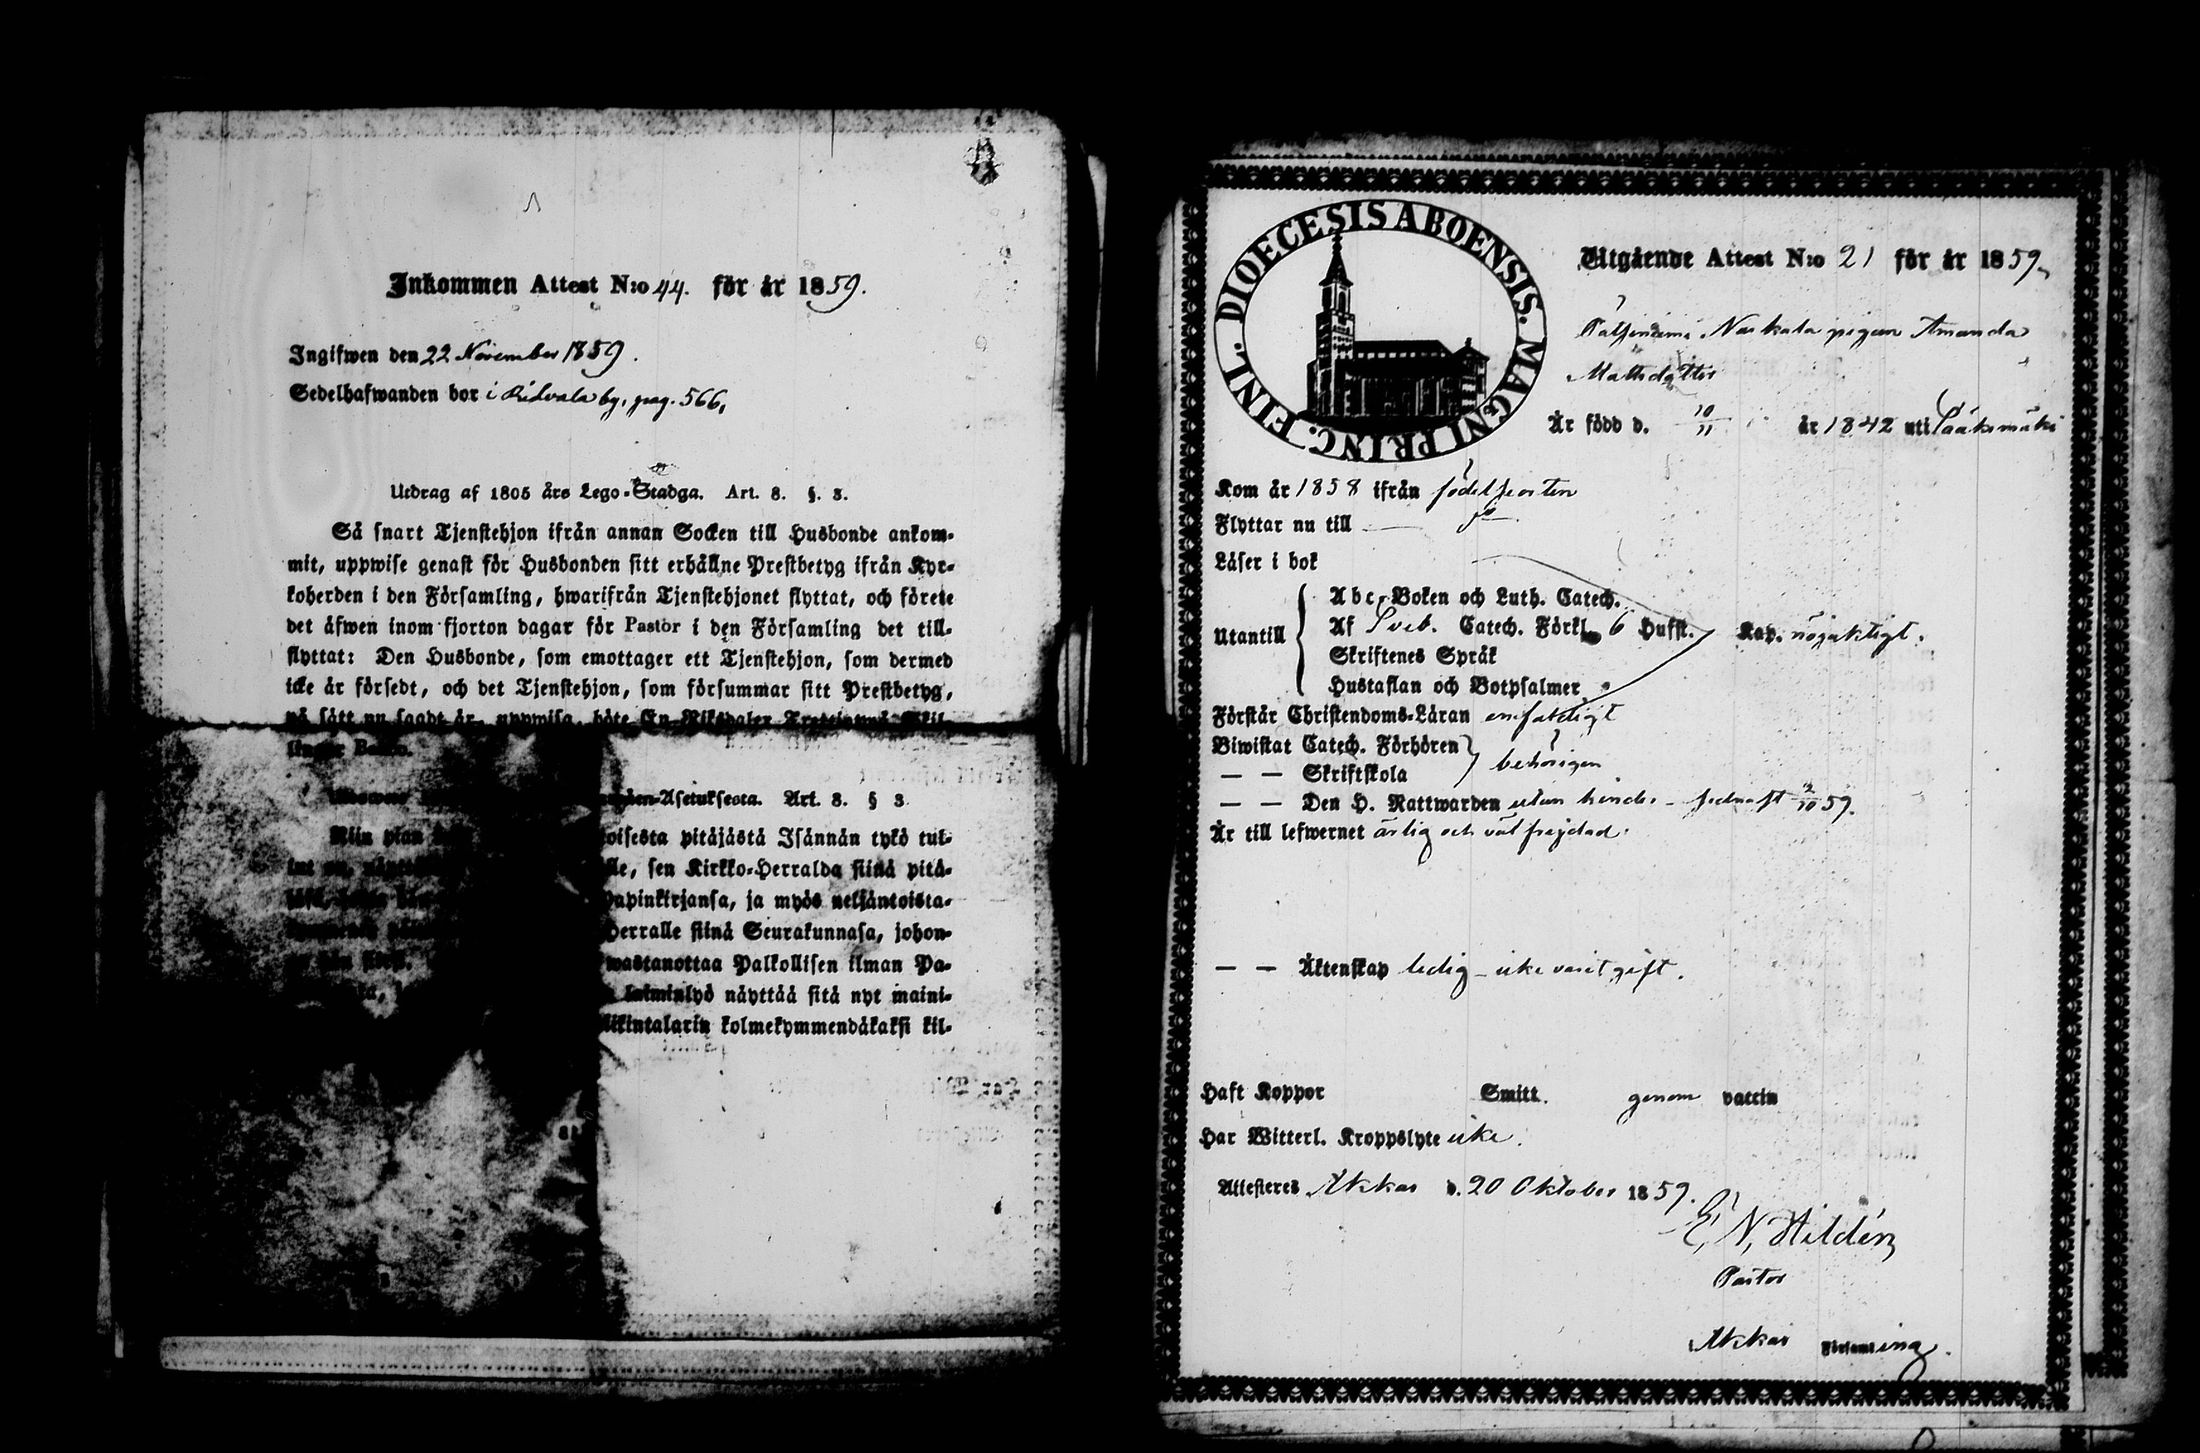 Inkommen Attest N:o 44. för år 1859.
Ingifwen den 22 November 1859.
Sedelhafwanden bor i Ridvala by, pag. 566,
Utdrag af 1805 års Lego-Stadga. Art. 8. §. 3.
Så snart Tjenstehjon ifrån annan Socken till Husbonde ankom-
mit, uppwise genast för Husbonden sitt erhållne Prestbetyg ifrån Kyr-
koherden i den Församling, hwarifrån Tjenstehjonet flyttat, och förete
det äfwen inom fjorton dagar för Pastor i den Församling det till-
flyttat: Den Husbonde, som emottager ett Tjenstehjon, som dermed
icke är försedt, och det Tjenstehjon, som försummar sitt Prestbetyg,
på sätt nu sagdt är, uppwisa, böte En Riksdaler Trettiotwå Skil-
lingar Banco.
Asetuksesta. Art. 8. § 3
Niin pian
toisesta pitäjästä Isännän tykö tul-
lle, sen Kirkko-Herralda siinä pitä-
Papinkirjansa, ja myös neljäntoista-
Herralle siinä Seurakunnasa, johon-
wastanottaa Palkollisen ilman Pa-
laiminlyö näyttää sitä nyt maini-
Rikintalarin kolmekymmendäkaksi kil-
DIOECESIS ABOENSIS. MAGNI PRINC. FINL.
Utgående Attest N:o 21 för år 1859,
Naskala pigan Amanda
Mattsdotter
Är född d. 10/11 år 1842 uti Sääksmäki
Kom år 1858 ifrån födelseorten
Flyttar nu till — d:o —
Läser i bok
Utantill
Abc-Boken och Luth. Catech.
Af Sveb. Catech. Förkl. 6 Hufst. Kap. nöjaktigt.
Skriftenes Språk
Hustaflan och Botpsalmer
Förstår Christendoms-Läran enfaldigt
Biwistat Catech. Förhören
— — Skriftskola behörigen
— — Den H. Nattwarden utan hinder - sednast 2/10 59.
Är till lefwernet ärlig och väl frejdad.
— — Äktenskap ledig - icke varit gift.
Haft Koppor Smitt. genom vaccin
Har Witterl. Kroppslyte icke.
Attesteras Akkas d. 20 Oktober 1859.
E, N, Hildén
Pastor
Akkas Församling.